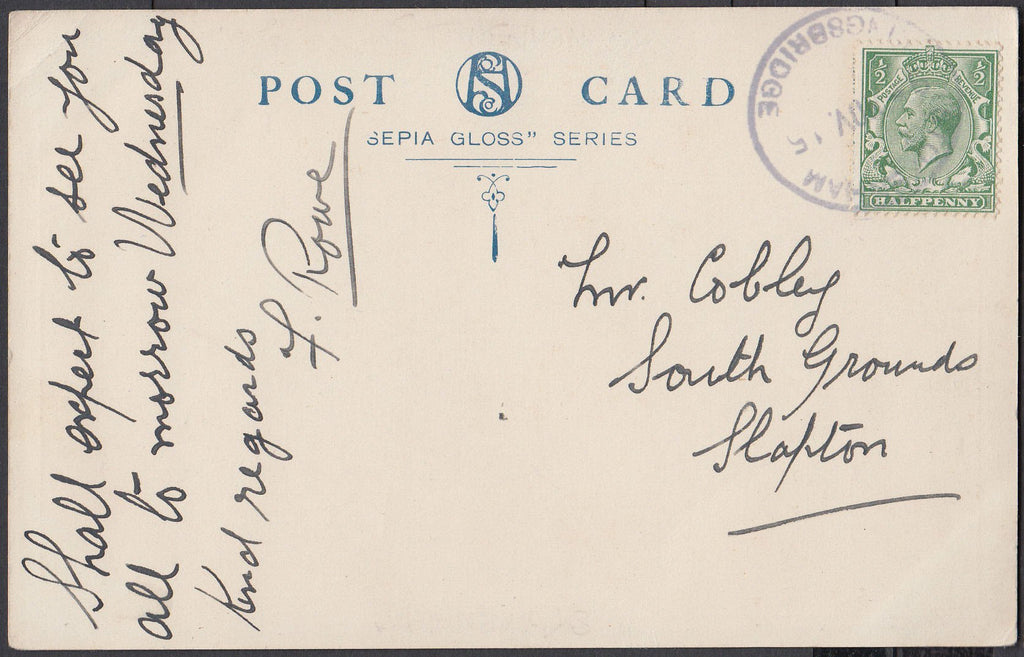 POST CARD
SEPIA GLOSS" SERIES
Shall expect to see you
all to morrow Wednesday
kind regards
F. Rowe
Mr. Cobley
South Grounds
Slapton
GSBRIDGE
15
HAM
1/2 1/2
POSTAGE REVENUE
HALFPENNY